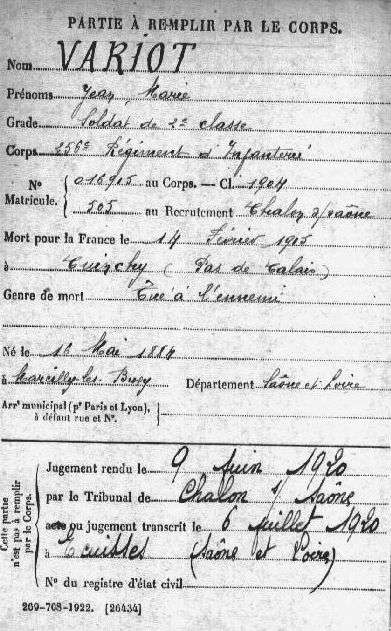 PARTIE À REMPLIR PAR LE CORPS.
Nom VARIOT
Prénoms Jean Marie
Grade Soldat de 2e classe
Corps 256e Régiment d'Infanterie
N° Matricule. { 016915 au Corps. — Cl. 1904
505 au Recrutement Chalon s/Saône
Mort pour la France le 14 Février 1915
à Cuinchy (Pas de Calais)
Genre de mort Tué à l'ennemi
Né le 16 Mai 1884
à Marcilly-les-Buxy Département Saône et Loire
Arrt municipal (pr Paris et Lyon), à défaut rue et N°.
Cette partie n'est pas à remplir par le Corps.
Jugement rendu le 9 Juin 1920
par le Tribunal de Chalon s/ Saône
acte ou jugement transcrit le 6 Juillet 1920
à Ecuisses (Saône et Loire)
N° du registre d'état civil
269-708-1922. [26434]